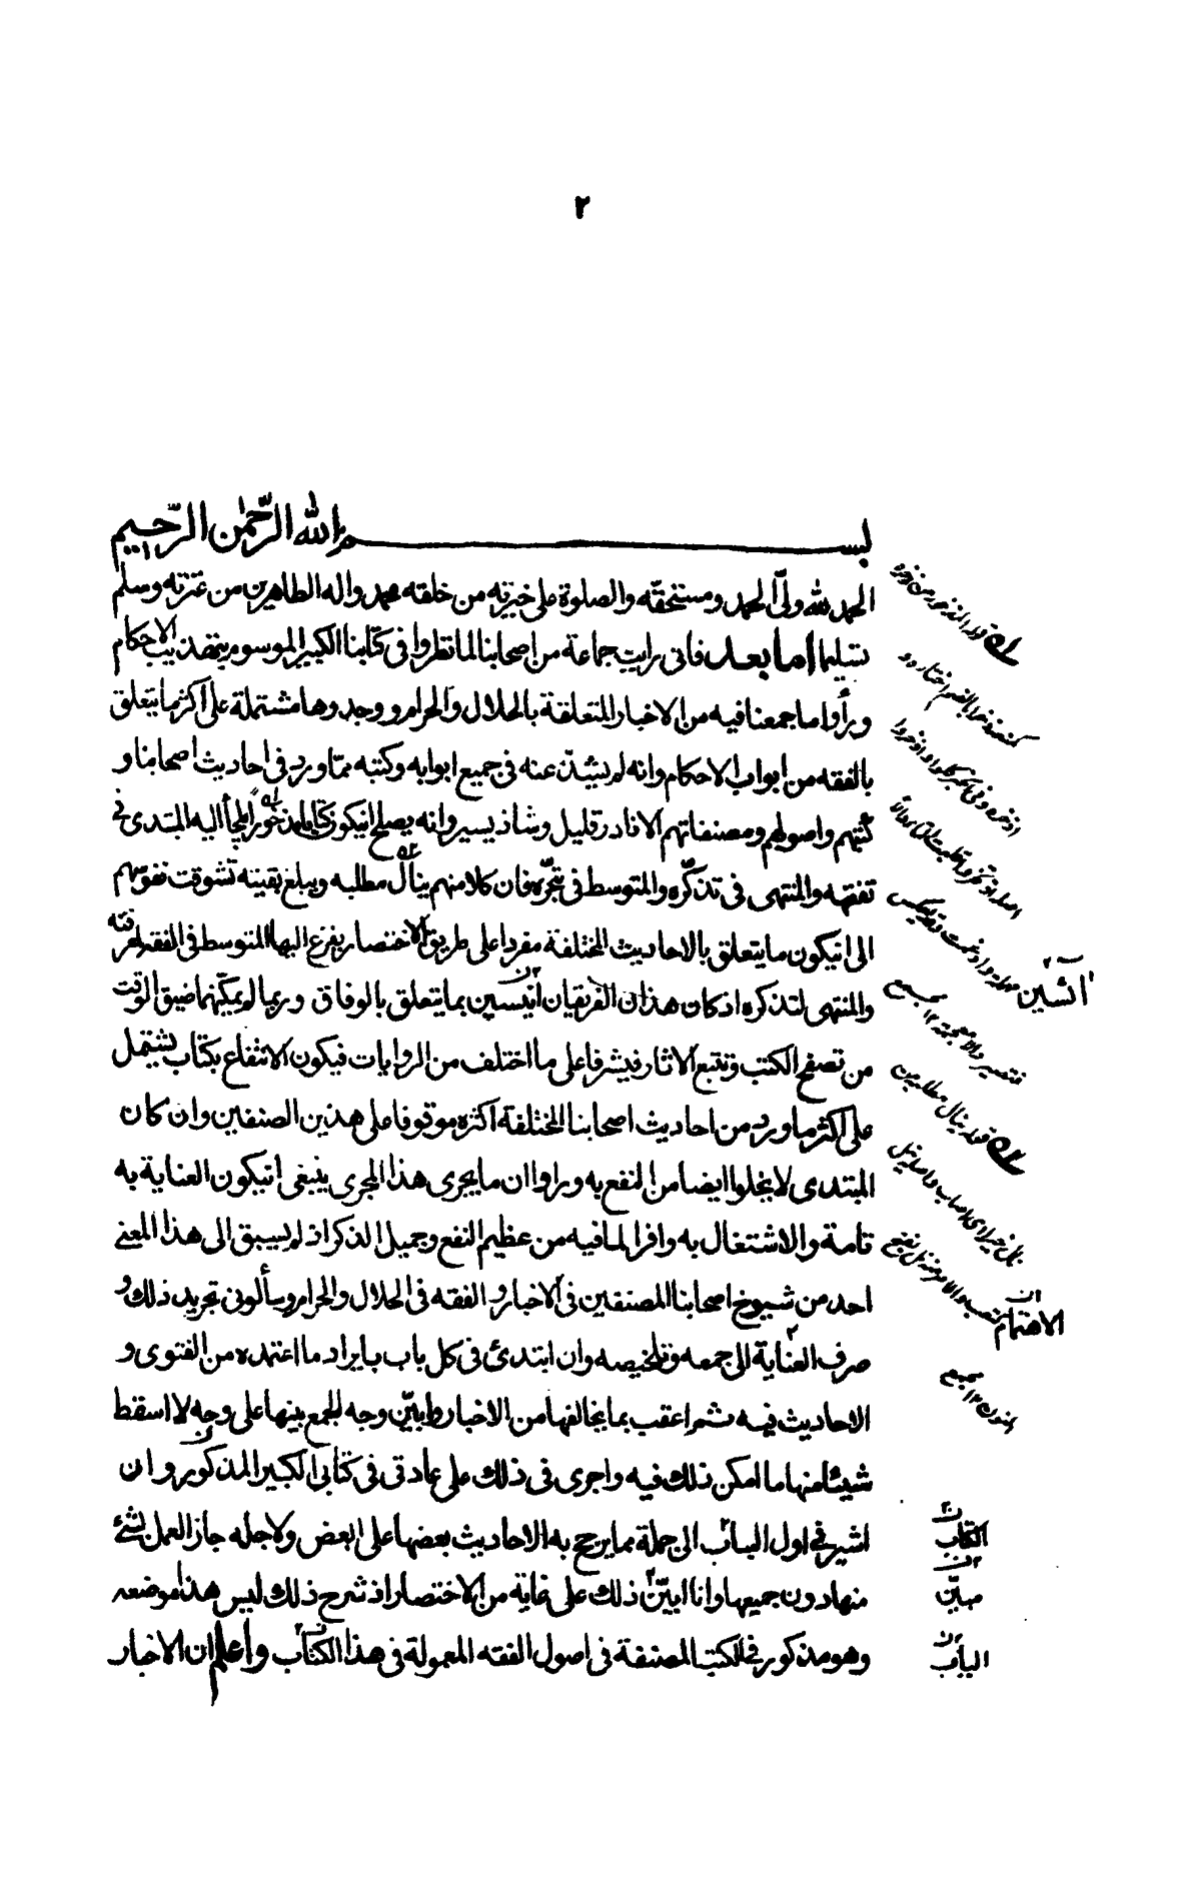 ٢
بسم الله الرّحمٰن الرّحيم
الحمد لله ولىّ الحمد ومستحقّه والصلوة على خيرته من خلقه محمد واله الطاهرين من عترته وسلم
تسليما اما بعد فانى رايت جماعة من اصحابنا لما نظروا فى كتابنا الكبير الموسوم بتهذيب الاحكام
ورأوا ما جمعنا فيه من الاخبار المتعلقة بالحلال والحرام ووجدوها مشتملة على اكثر ما يتعلق
بالفقه من ابواب الاحكام وانه لم يشذّ عنه فى جميع ابوابه وكتبه ممّا ورد فى احاديث اصحابنا و
كتبهم واصولهم ومصنفاتهم الا نادر قليل وشاذ يسير وانه يصلح ان يكون كتابا مذخورا يلجأ اليه المبتدى فى
تفقهه والمنتهى فى تذكّره والمتوسط فى تبحّره فان كلا منهم ينال مطلبه ويبلغ بغيته تشوقت نفوسهم
الى ان يكون ما يتعلق بالاحاديث المختلفة مفردا على طريق الاختصار يفزع اليها المتوسط فى الفقه لمعرفته
والمنتهى لتذكره اذ كان هذان الفريقان انيسين بما يتعلق بالوفاق وربما لم يمكّنهما ضيق الوقت
من تصفح الكتب وتتبع الاثار فيشرفا على ما اختلف من الروايات فيكون الانتفاع بكتاب يشتمل
على اكثر ما ورد من احاديث اصحابنا المختلفة اكثره موقوفا على هذين الصنفين وان كان
المبتدى لا يخلوا ايضا من النفع به وراوا ان ما يجرى هذا المجرى ينبغى ان يكون العناية به
تامة والاشتغال به وافرا لما فيه من عظيم النفع وجميل الذكر اذ لم يسبق الى هذا المعنى
احد من شيوخ اصحابنا المصنفين فى الاخبار والفقه فى الحلال والحرام وسألونى تجريد ذلك و
صرف العناية الى جمعه وتلخيصه وان ابتدئ فى كل باب بايراد ما اعتمده من الفتوى و
الاحاديث فيه ثم اعقب بما يخالفها من الاخبار وابيّن وجه الجمع بينها على وجه لا اسقط
شيئا منها ما امكن ذلك فيه واجرى فى ذلك على عادتى فى كتابى الكبير المذكور وان
اشير فى اول الباب الى جملة مما يرجح به الاحاديث بعضها على بعض ولاجله جاز العمل بشئ
منها دون جميعها وانا ابيّن ذلك على غاية من الاختصار اذ شرح ذلك ليس هذا موضعه
وهو مذكور فى الكتب المصنفة فى اصول الفقه المعمولة فى هذا الكتاب واعلم ان الاخبار
انسين
الاهتمام
الكتاب
مبيّن
الباب